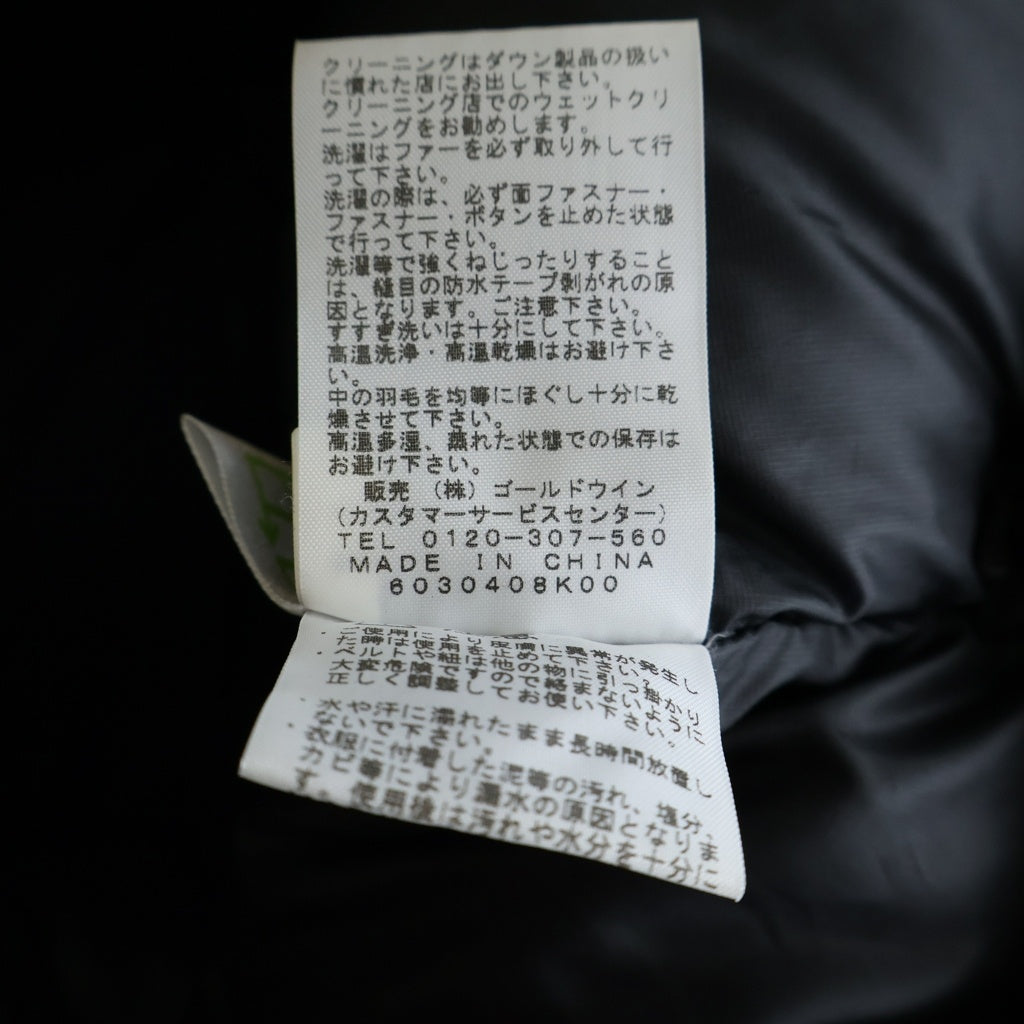 クリーニングはダウン製品の扱い
に慣れた店にお出し下さい。
クリーニング店でのウェットクリ
ーニングをお勧めします。
洗濯はファーを必ず取り外して行
って下さい。
洗濯の際は、必ず面ファスナー・
ファスナー・ボタンを止めた状態
で行って下さい。
洗濯等で強くねじったりすること
は、縫目の防水テープ剥がれの原
因となります。ご注意下さい。
すすぎ洗いは十分にして下さい。
高温洗浄・高温乾燥はお避け下さ
い。
中の羽毛を均等にほぐし十分に乾
燥させて下さい。
高温多湿、蒸れた状態での保存は
お避け下さい。
販売 （株）ゴールドウイン
（カスタマーサービスセンター）
TEL 0120-307-560
MADE IN CHINA
6030408K00
発生し
引っ掛かり
まないように
お使い下さい。
・水や汗に濡れたまま長時間放置し
ないで下さい。
・衣服に付着した泥等の汚れ、塩分、
カビ等により漏水の原因となりま
す。使用後は汚れや水分を十分に